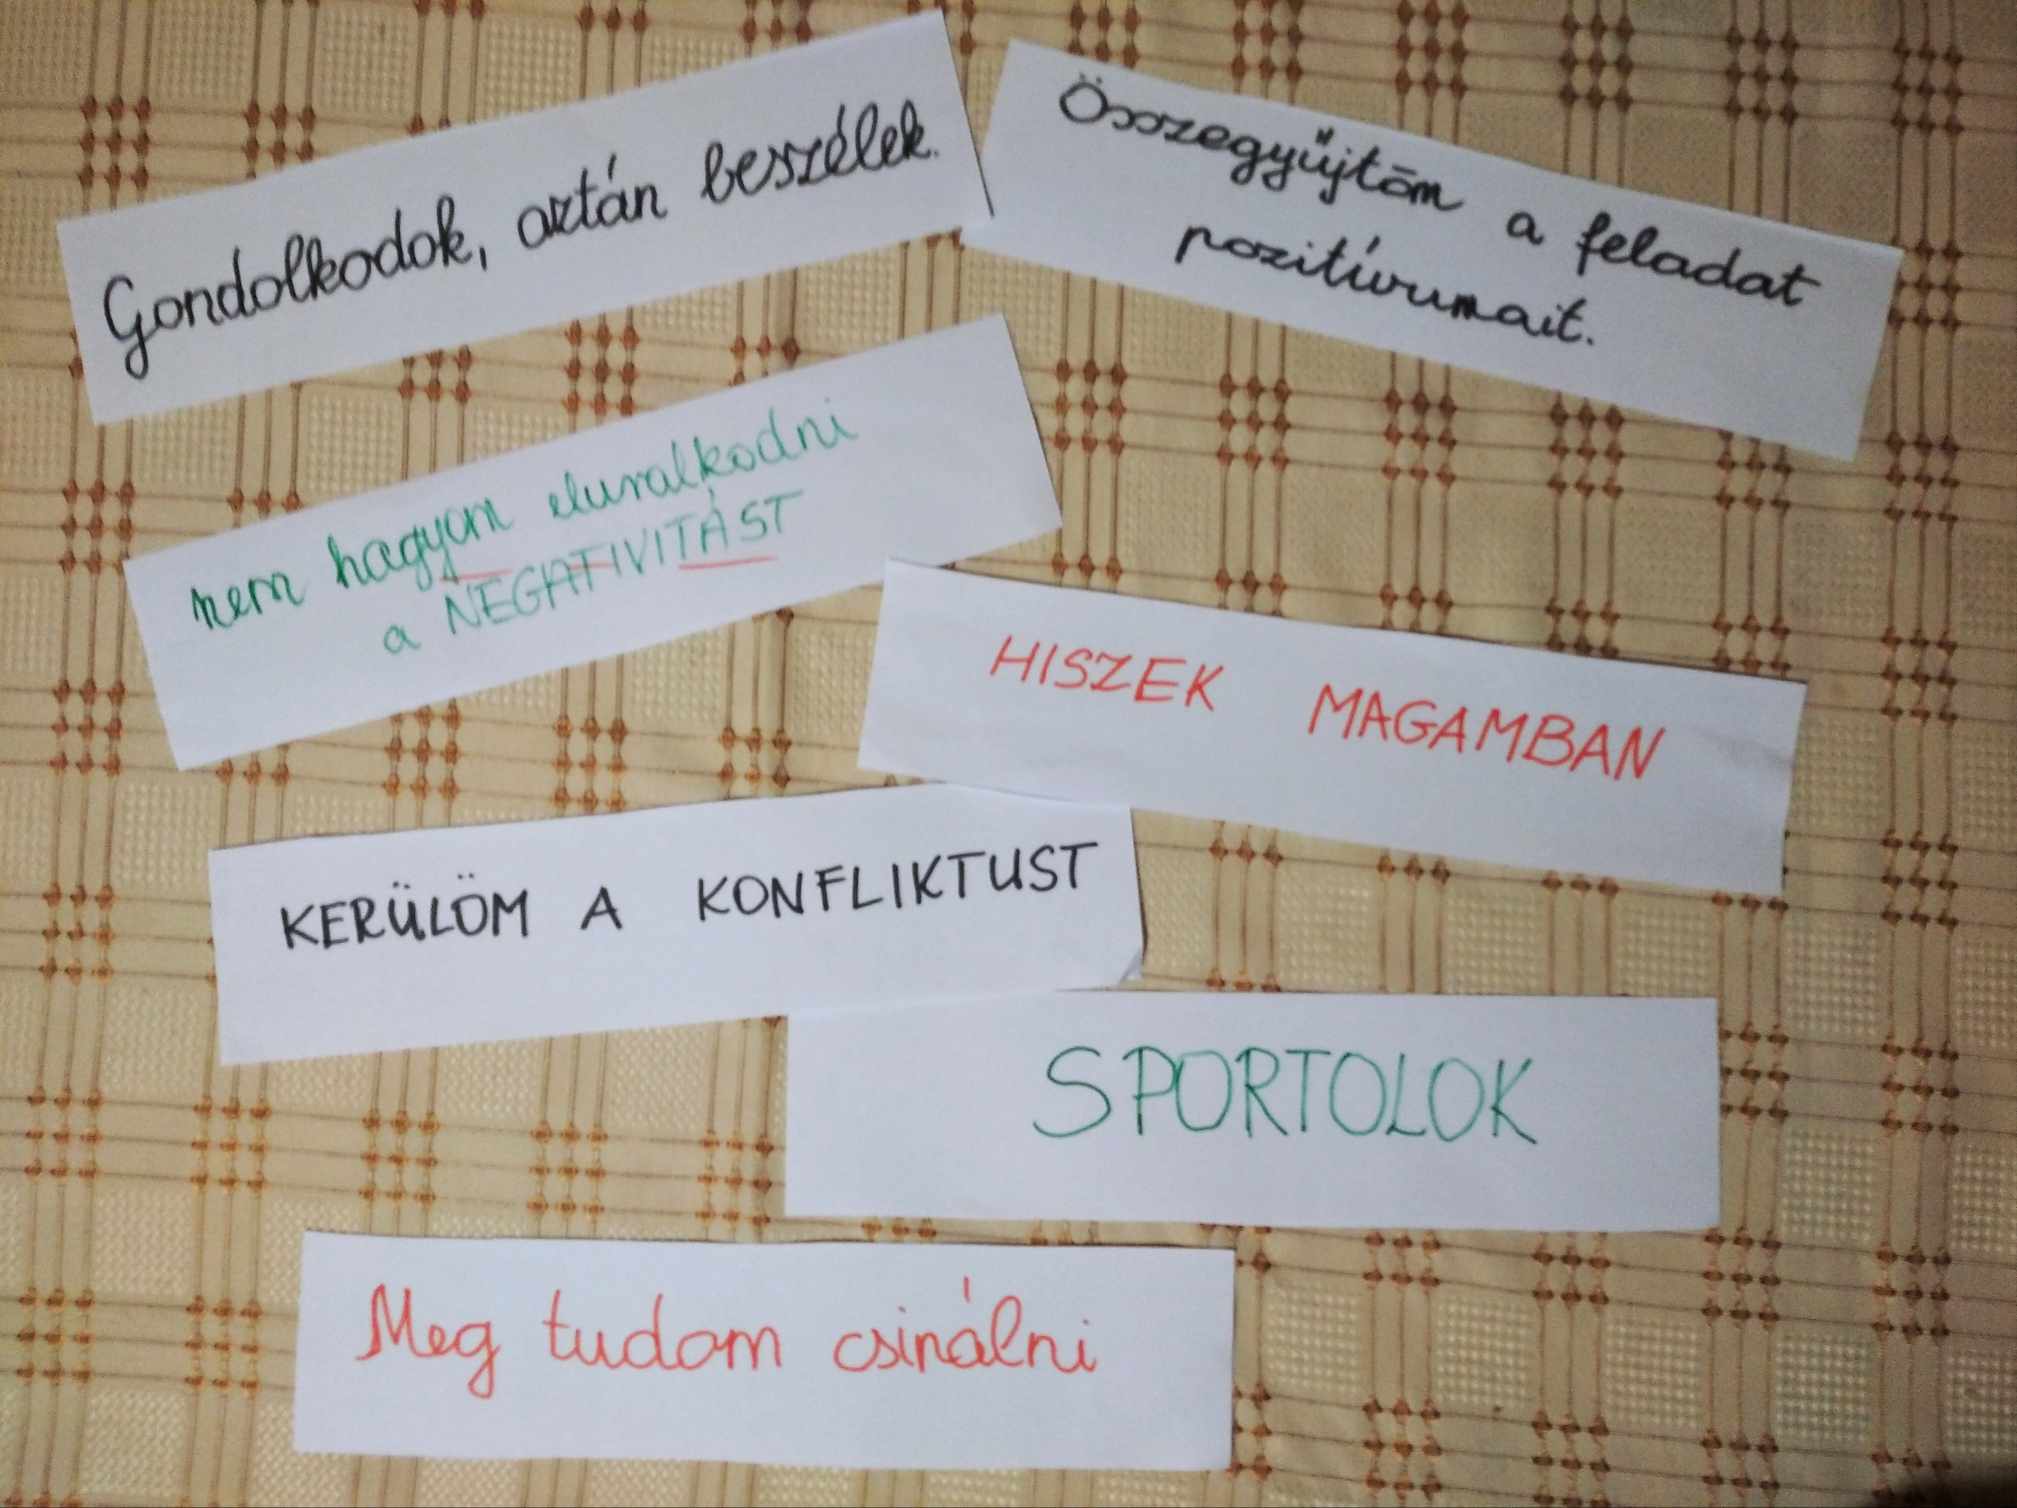 Gondolkodok, aztán beszélek.
Összegyűjtöm a feladat
pozitívumait.
nem hagyom eluralkodni
a NEGATIVITÁST
HISZEK MAGAMBAN
KERÜLÖM A KONFLIKTUST
SPORTOLOK
Meg tudom csinálni